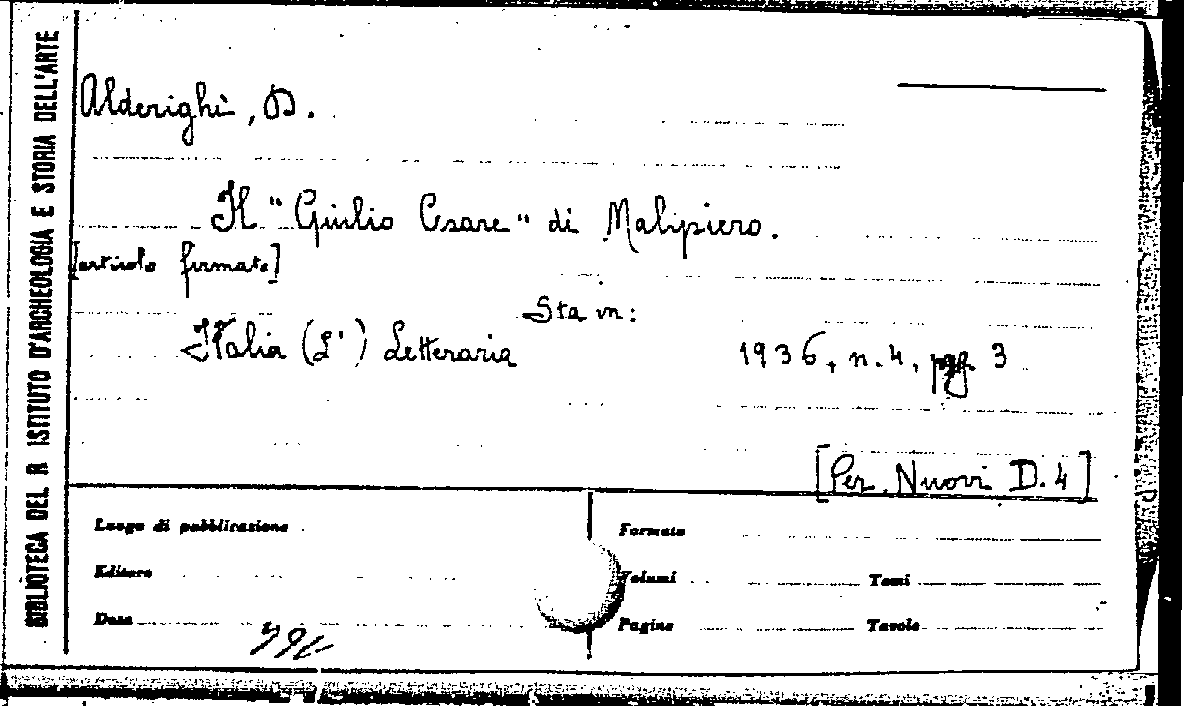 BIBLIOTECA DEL R ISTITUTO D'ARCHEOLOGIA E STORIA DELL'ARTE
Alderighi, D.
Il "Giulio Cesare" di Malipiero.
[articolo firmato]
Sta in:
Italia (L') Letteraria 1936, n. 4, pgf. 3
[Per. Nuovi D. 4]
Luogo di pubblicazione
Formato
Editore
Volumi Tomi
Data
Pagine Tavole